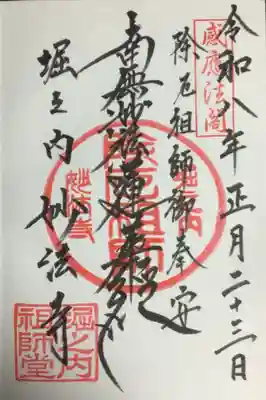 令和八年正月二十三日
除厄祖師御奉安
南無妙法蓮華経
堀之内妙法寺
除厄祖師
堀之内
妙法寺
堀之内
祖師堂